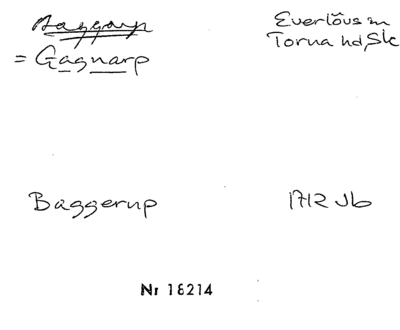 Baggarp
= Gagnarp
Everlövs sn
Torna hd, Sk
Baggerup
1712 Jb
Nr 18214